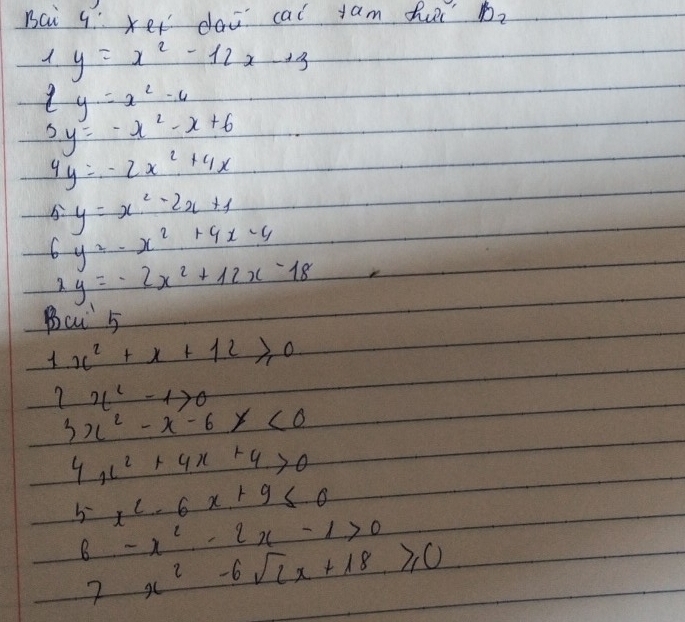 Bài 4: xét dấu các tam thức B2
1. y = x² - 12x + 3
2 y = x² - 4
3 y = -x² - x + 6
4 y = -2x² + 4x
5 y = x² - 2x + 1
6 y = -x² + 4x - 4
7 y = -2x² + 12x - 18
Bài 5
1 x² + x + 12 ≥ 0
2 x² - 1 > 0
3 x² - x - 6 < 0
4 x² + 4x + 4 > 0
5 x² - 6x + 9 ≤ 0
6 -x² - 2x - 1 > 0
7 x² - 6√2x + 18 ≥ 0